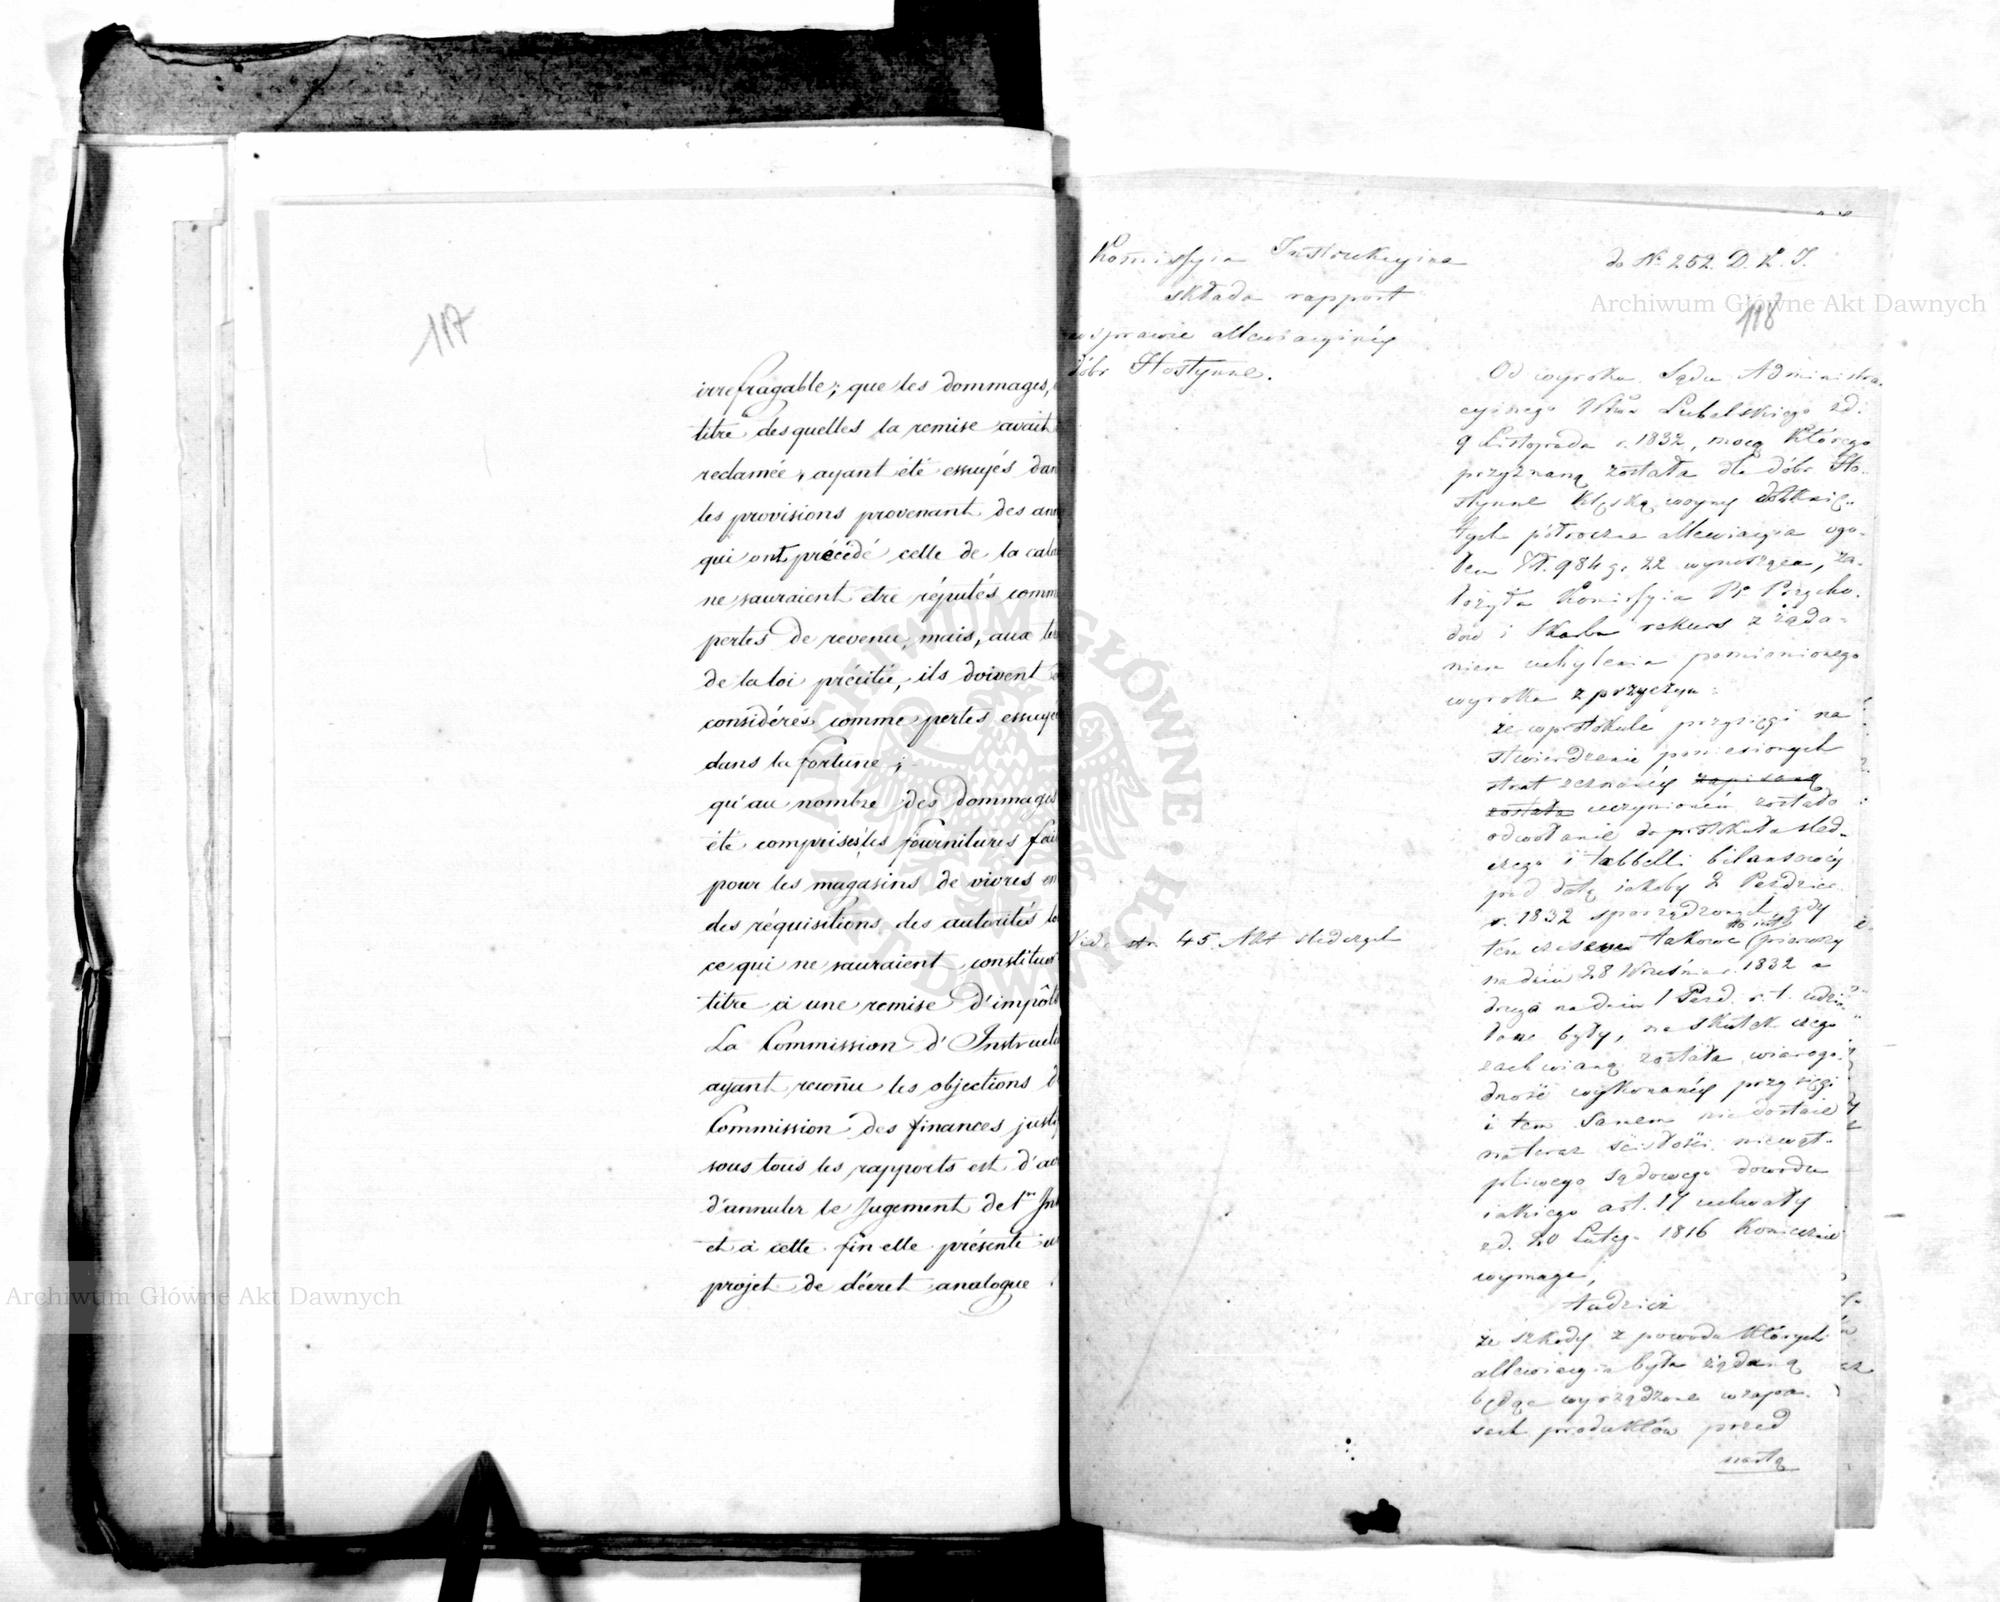 117
irrefragable; que les dommages,
titre desquelles la remise avait
reclamée, ayant été essuyés dan
les provisions provenant des ann
qui ont précédé celle de la cala
ne sauraient etre réputés comm
pertes de revenu, mais, aux te
de la loi précitée, ils doivent
considérés comme pertes essuyé
dans la fortune;
qu'au nombre des dommages
été comprises les fournitures fai
pour les magasins de vivres en
des réquisitions des autorités lo
ce qui ne sauraient constituer
titre à une remise d'impôt
La Commission d'Instructi
ayant reconnu les objections d
Commission des finances justi
sous tous les rapports est d'av
d'annuler le Jugement de 1re Ins
et à cette fin elle présente u
projet de décret analogue.
Kommissyia Instrukcyina
składa rapport
w sprawie allewiacyinéy
dóbr Hostynne.
do No 252. D. K. I.
118
Od wyroku Sądu Administra-
cyinego Wttwa Lubelskiego z d:
9 Listopada r. 1832, mocą którego
przyznaną została dla dóbr Ho-
stynne klęską woyny dotknię-
tych półroczna allewiacyia ogó-
łem Zł. 984 gr 22 wynosząca, za-
łożyła Kommissyia Rz. Przycho-
dów i Skarbu rekurs z żąda-
niem uchylenia pomienionego
wyroku z przyczyn:
że w protokule przysięgi na
stwierdzenie poniesionych
strat zeznanéy zapisaną
została uczynioném zostało
odwołanie do protokułu śled-
czego i tabbelli bilansowéy
pod datą jakoby 2 Paździer.
r. 1832 sporządzonych, gdy
tym czasem takowe (pierwszy
na dniu 28 Września r. 1832 a
druga na dniu 1 Paźd. r. t. udzia-
łane były, na skutek czego
zachwianą została wiarogo-
dność wykonanéy przysięgi
i tem samem nie dostaie
natéraz ściśłości niewąt-
pliwego sądowego dowodu
iakiego art. 17 uchwały
z d. 20 Lutego 1816 koniecznie
wymaga,
tudzież
że szkody z powodu których
allewiacyia była żądaną
będąc wyrządzone w zapa-
sach produktów przed
nastą
Vide str. 45. Akt śledczych
Archiwum Główne Akt Dawnych
Archiwum Główne Akt Dawnych
ARCHIWUM GŁÓWNE AKT DAWNYCH